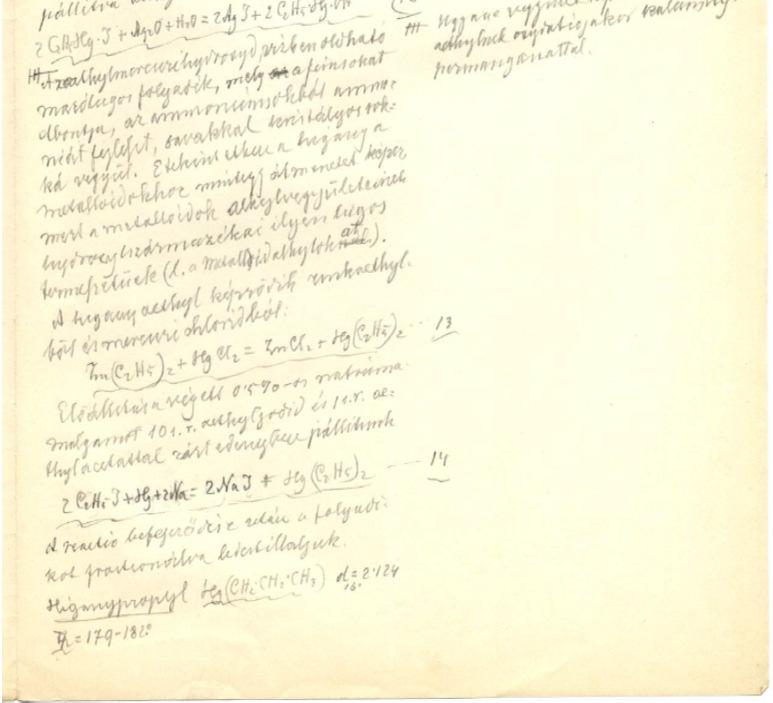 pállítva
2 C₂H₅Hg·J + Ag₂O + H₂O = 2AgJ + 2 C₂H₅·Hg·OH
Az aethylmercurihydroxyd, vízben oldható
marólúgos folyadék, mely a fémsókat
elbontja, az ammoniumsókból ammo-
niát fejleszt, savakkal kristályos sók-
ká vegyül. E tekintetben a higany a
metalloidokhoz mintegy átmenetet képez
mert a metalloidok alkylvegyületeinek
hydroxylszármazékai ilyen lúgos
természetűek (l. a metalloidaethyloknál).
A higanyaethyl képződik zinkaethyl-
ből és mercurichloridból:
Zn(C₂H₅)₂ + HgCl₂ = ZnCl₂ + Hg(C₂H₅)₂ -- 13
Előállítása végett 0·5%-os nátriuma-
malgamot 10 s.r. aethyljodid és 1 s.r. ae-
thylacetattal zárt edényben
2 C₂H₅·J + Hg + 2Na = 2NaJ + Hg(C₂H₅)₂ --- 14
A reactio befejeződése után a folyadé-
kot fractionálva ledestilláljuk.
Higanypropyl Hg(CH₂·CH₂·CH₃) d = 2·124
16°
= 179-182°
Ugyane
aethylnek oxydatiojakor
permanganattal.